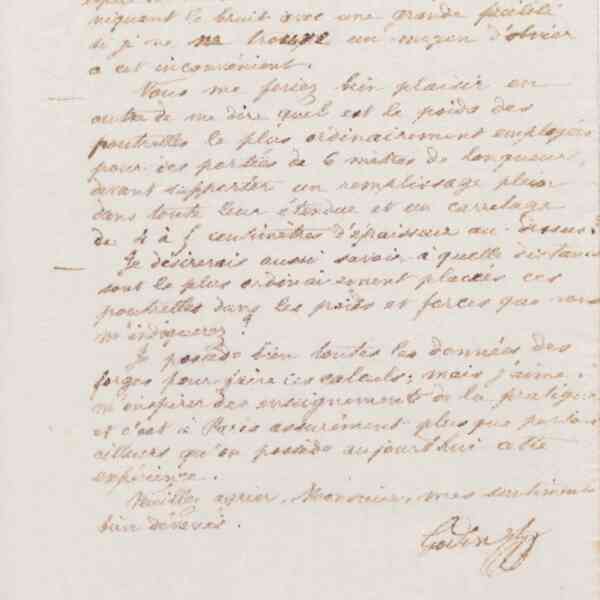 niquant le bruit avec une grande facilité
si je ne trouve un moyen d'obvier
a cet inconvénient.
Vous me feriez bien plaisir en
outre de me dire quel est le poids des
poutrelles le plus ordinairement employées
pour des portées de 6 mètres de longueur,
devant supporter un remplissage plein
dans toute leur étendue et un carrelage
de 4 à 5 centimètres d'épaisseur au-dessus?
Je désirerais aussi savoir à quelle distance
sont le plus ordinairement placées ces
poutrelles dans les poids et forces que vous
m'indiquerez?
Je possède bien toutes les données des
forges pour faire ces calculs; mais j'aime à
m'inspirer des enseignements de la pratique
et c'est à Paris assurément plus que partout
ailleurs qu'on possède aujourd'hui cette
expérience.
Veuillez agréer, Monsieur, mes sentiments
bien dévoués.
Godin